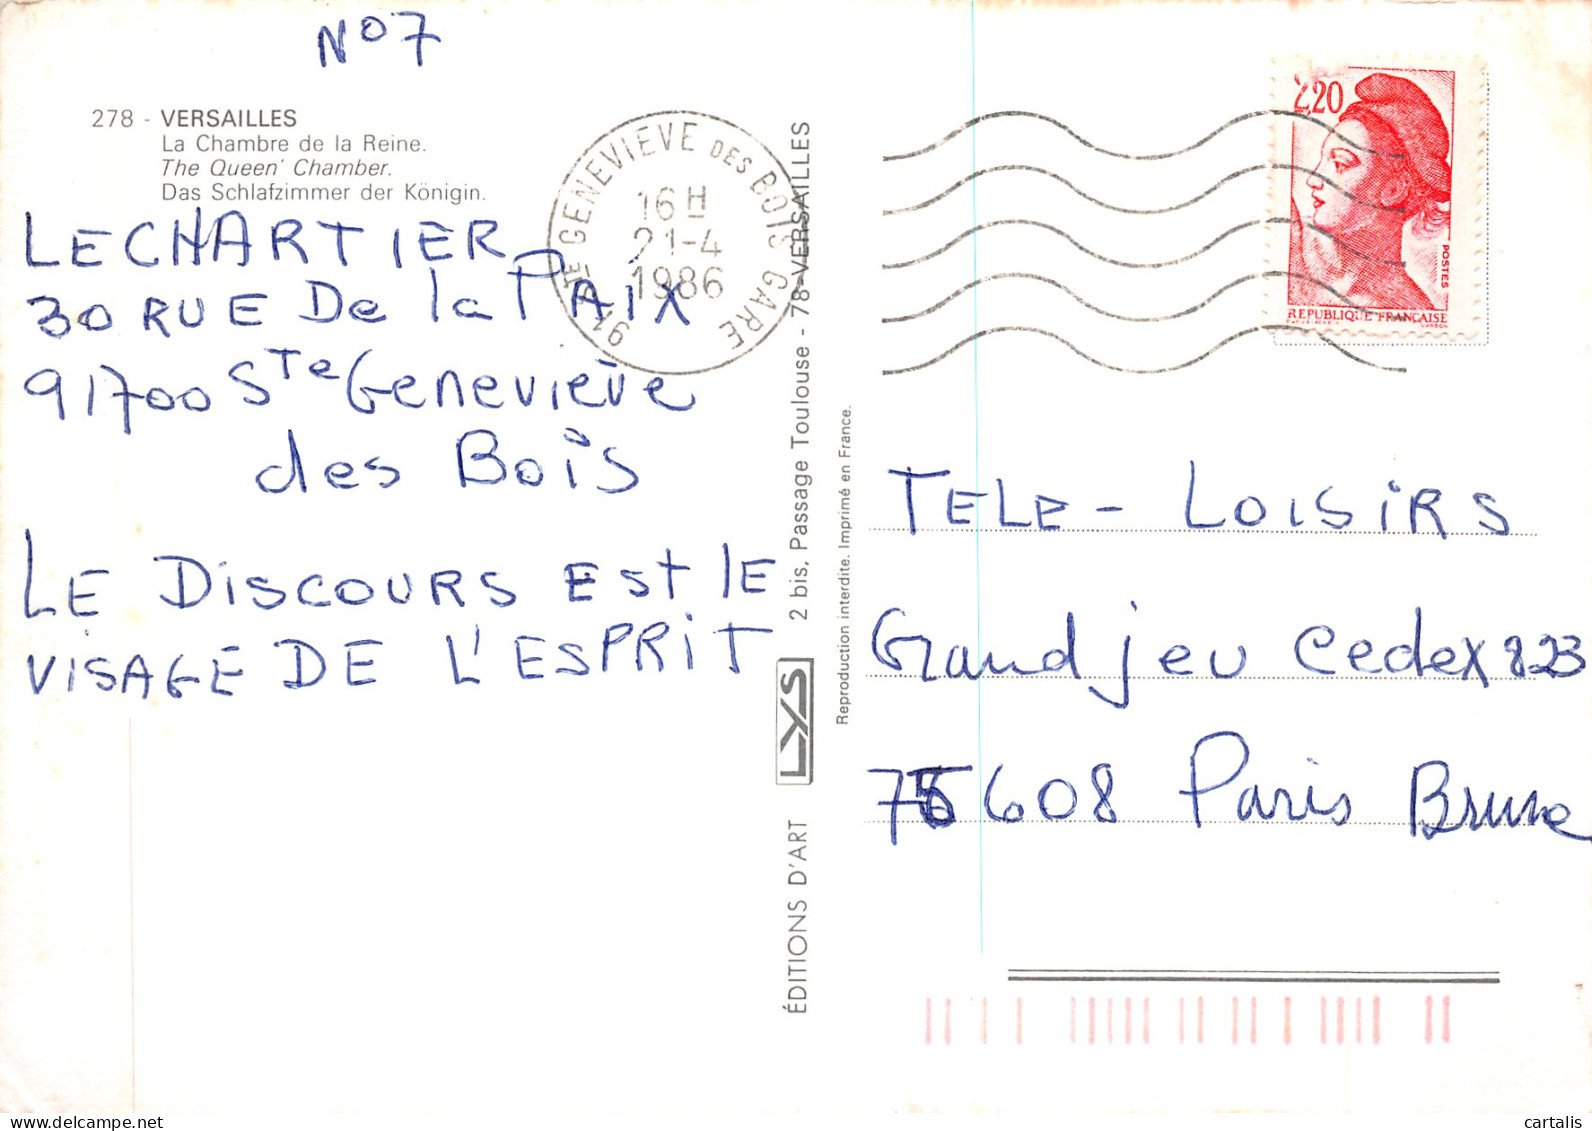 N°7
278 - VERSAILLES
La Chambre de la Reine.
The Queen' Chamber.
Das Schlafzimmer der Königin.
LECHARTIER
30 RUE De la PAIX
91700 Ste Geneviève
des Bois
LE DISCOURS EST LE
VISAGE DE L'ESPRIT
91 STE GENEVIEVE DES BOIS GARE
16H
21-4
1986
ÉDITIONS D'ART LYS 2 bis, Passage Toulouse - 78-VERSAILLES
Reproduction interdite. Imprimé en France.
2,20
POSTES
REPUBLIQUE FRANÇAISE
TELE - LOISIRS
Grand jeu Cedex 823
75608 Paris Brune
cartalis